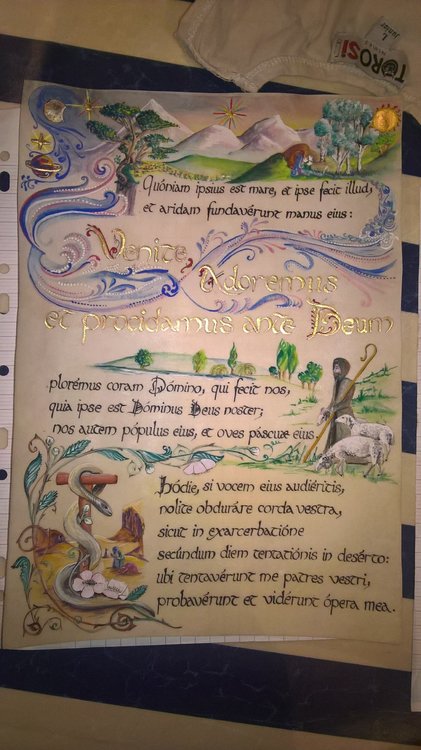 TOROSİ
Junior
L
Quóniam ipsíus est mare, et ipse fecit illud,
et aridam fundavérunt manus eius:
Venite, Adoremus
et procidamus ante Deum
plorémus coram Dómino, qui fecit nos,
quia ipse est Dóminus Deus noster;
nos autem pópulus eius, et oves páscuæ eius
Hódie, si vocem eius audiéritis,
nolite obduráre corda vestra,
sicut in exarcerbatióne
secúndum diem tentatiónis in desérto:
ubi tentavérunt me patres vestri,
probavérunt et vidérunt ópera mea.